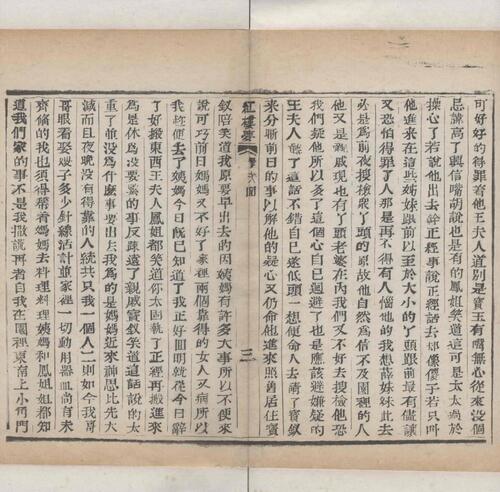 可好好的得罪着他王夫人道別是寶玉有嘴無心從來沒個
忌諱高了興信嘴胡說也是有的鳳姐笑道這可是太太過於
操心了若說他出去幹正經事說正經話去却像傻子若只叫
他進來在這些姊妹跟前以至於大小的丫頭跟前最有儘讓
又恐怕得罪了人那是再不得有人惱他的我想薛妹妹此去
必是爲前夜搜檢衆丫頭的原故他自然爲信不及園裡的人
他又是親戚現也有丫頭老婆在內我們又不好去搜檢他恐
我們疑他所以多了這個心自已迴避了也是應該避嫌疑的
王夫人聽了這話不錯自已遂低頭一想便命人去請了寶釵
來分晰前日的事以解他的疑心又仍命他進來照舊居住寶
紅樓夢 第 回 三
釵陪笑道我原要早出去的因姨媽有許多大事所以不便來
說可巧前日媽媽又不好了家裡兩個靠得的女人又病所以
我趁便去了姨媽今日旣已知道了我正好囬明就從今日辭
了好搬東西王夫人鳳姐都笑道你太固執了正經再搬進來
爲是休爲沒要緊的事反疎遠了親戚寶釵笑道這話說的太
重了並沒爲什麽事要出去我爲的是媽媽近來神思比先大
減而且夜晚沒有得靠的人統共只我一個人二則如今我哥
哥眼看娶嫂子多少針線活計並家裡一切動用器皿尚有未
齊備的我也須得帮着媽媽去料理料理姨媽和鳳姐姐都知
道我們家的事不是我撒謊再者自我在園裡東南上小角門